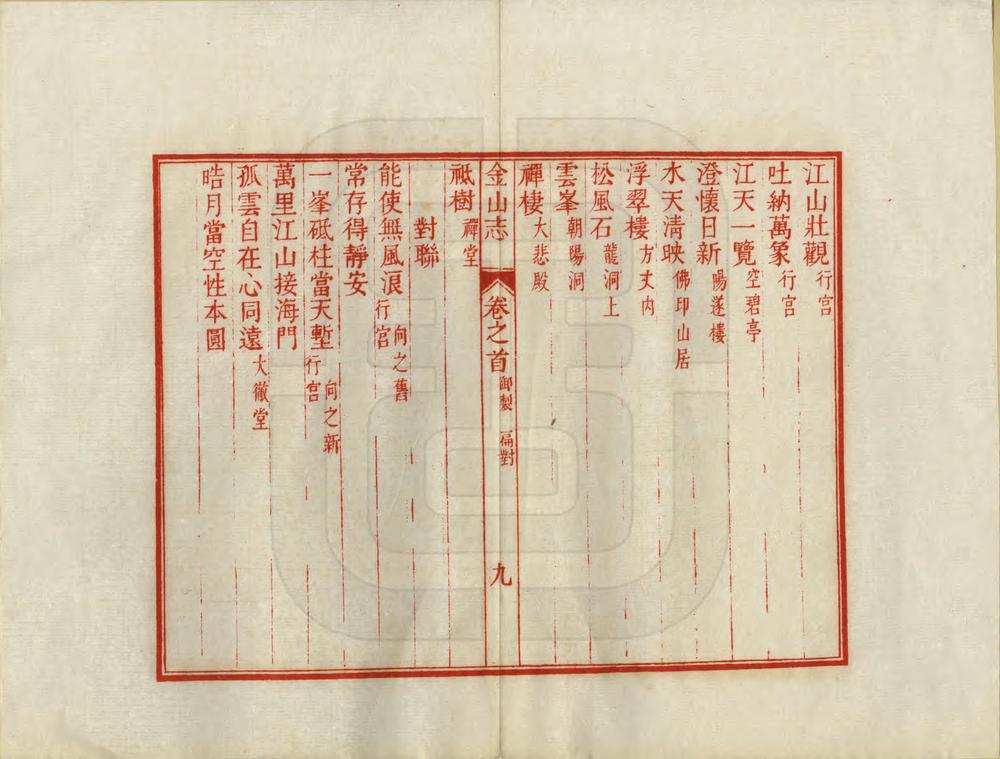 江山壯觀行宮
吐納萬象行宮
江天一覽空碧亭
澄懷日新陽遂樓
水天清映佛印山居
浮翠樓方丈內
松風石龍洞上
雲峯朝陽洞
禪棲大悲殿
金山志 卷之首 御製 匾對 九
祗樹禪堂
對聯
能使無風浪向之舊行宮
常存得靜安
一峯砥柱當天塹向之新行宮
萬里江山接海門
孤雲自在心同遠大徹堂
皓月當空性本圓